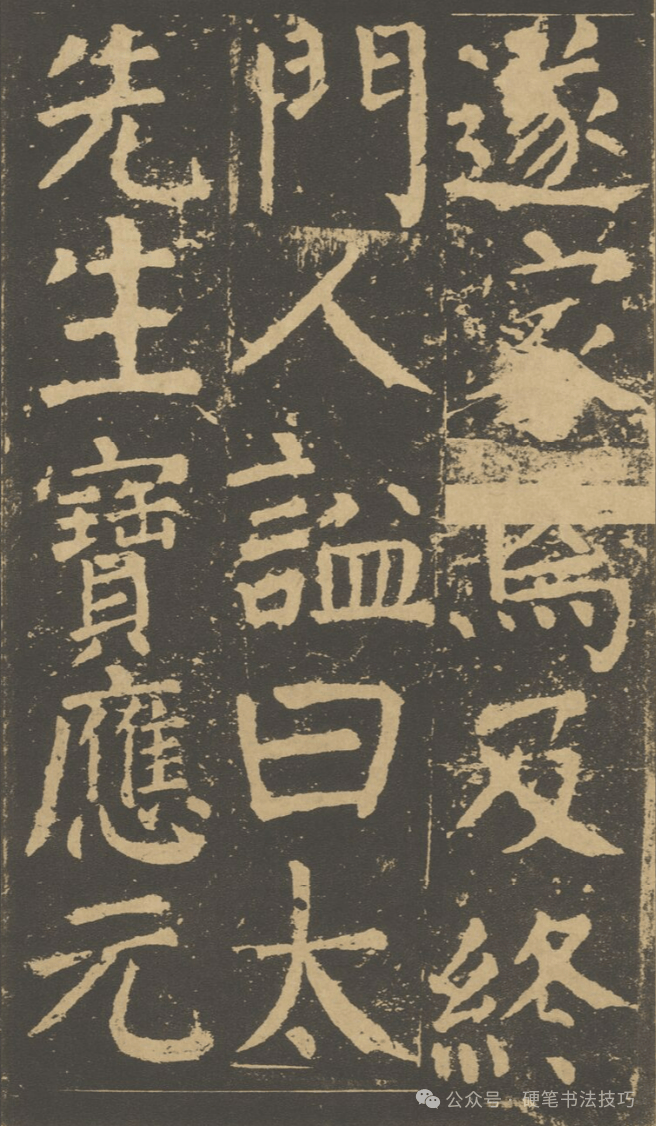 遂家焉及終
門人謚曰太
先生寶應元
公众号 · 硬笔书法技巧